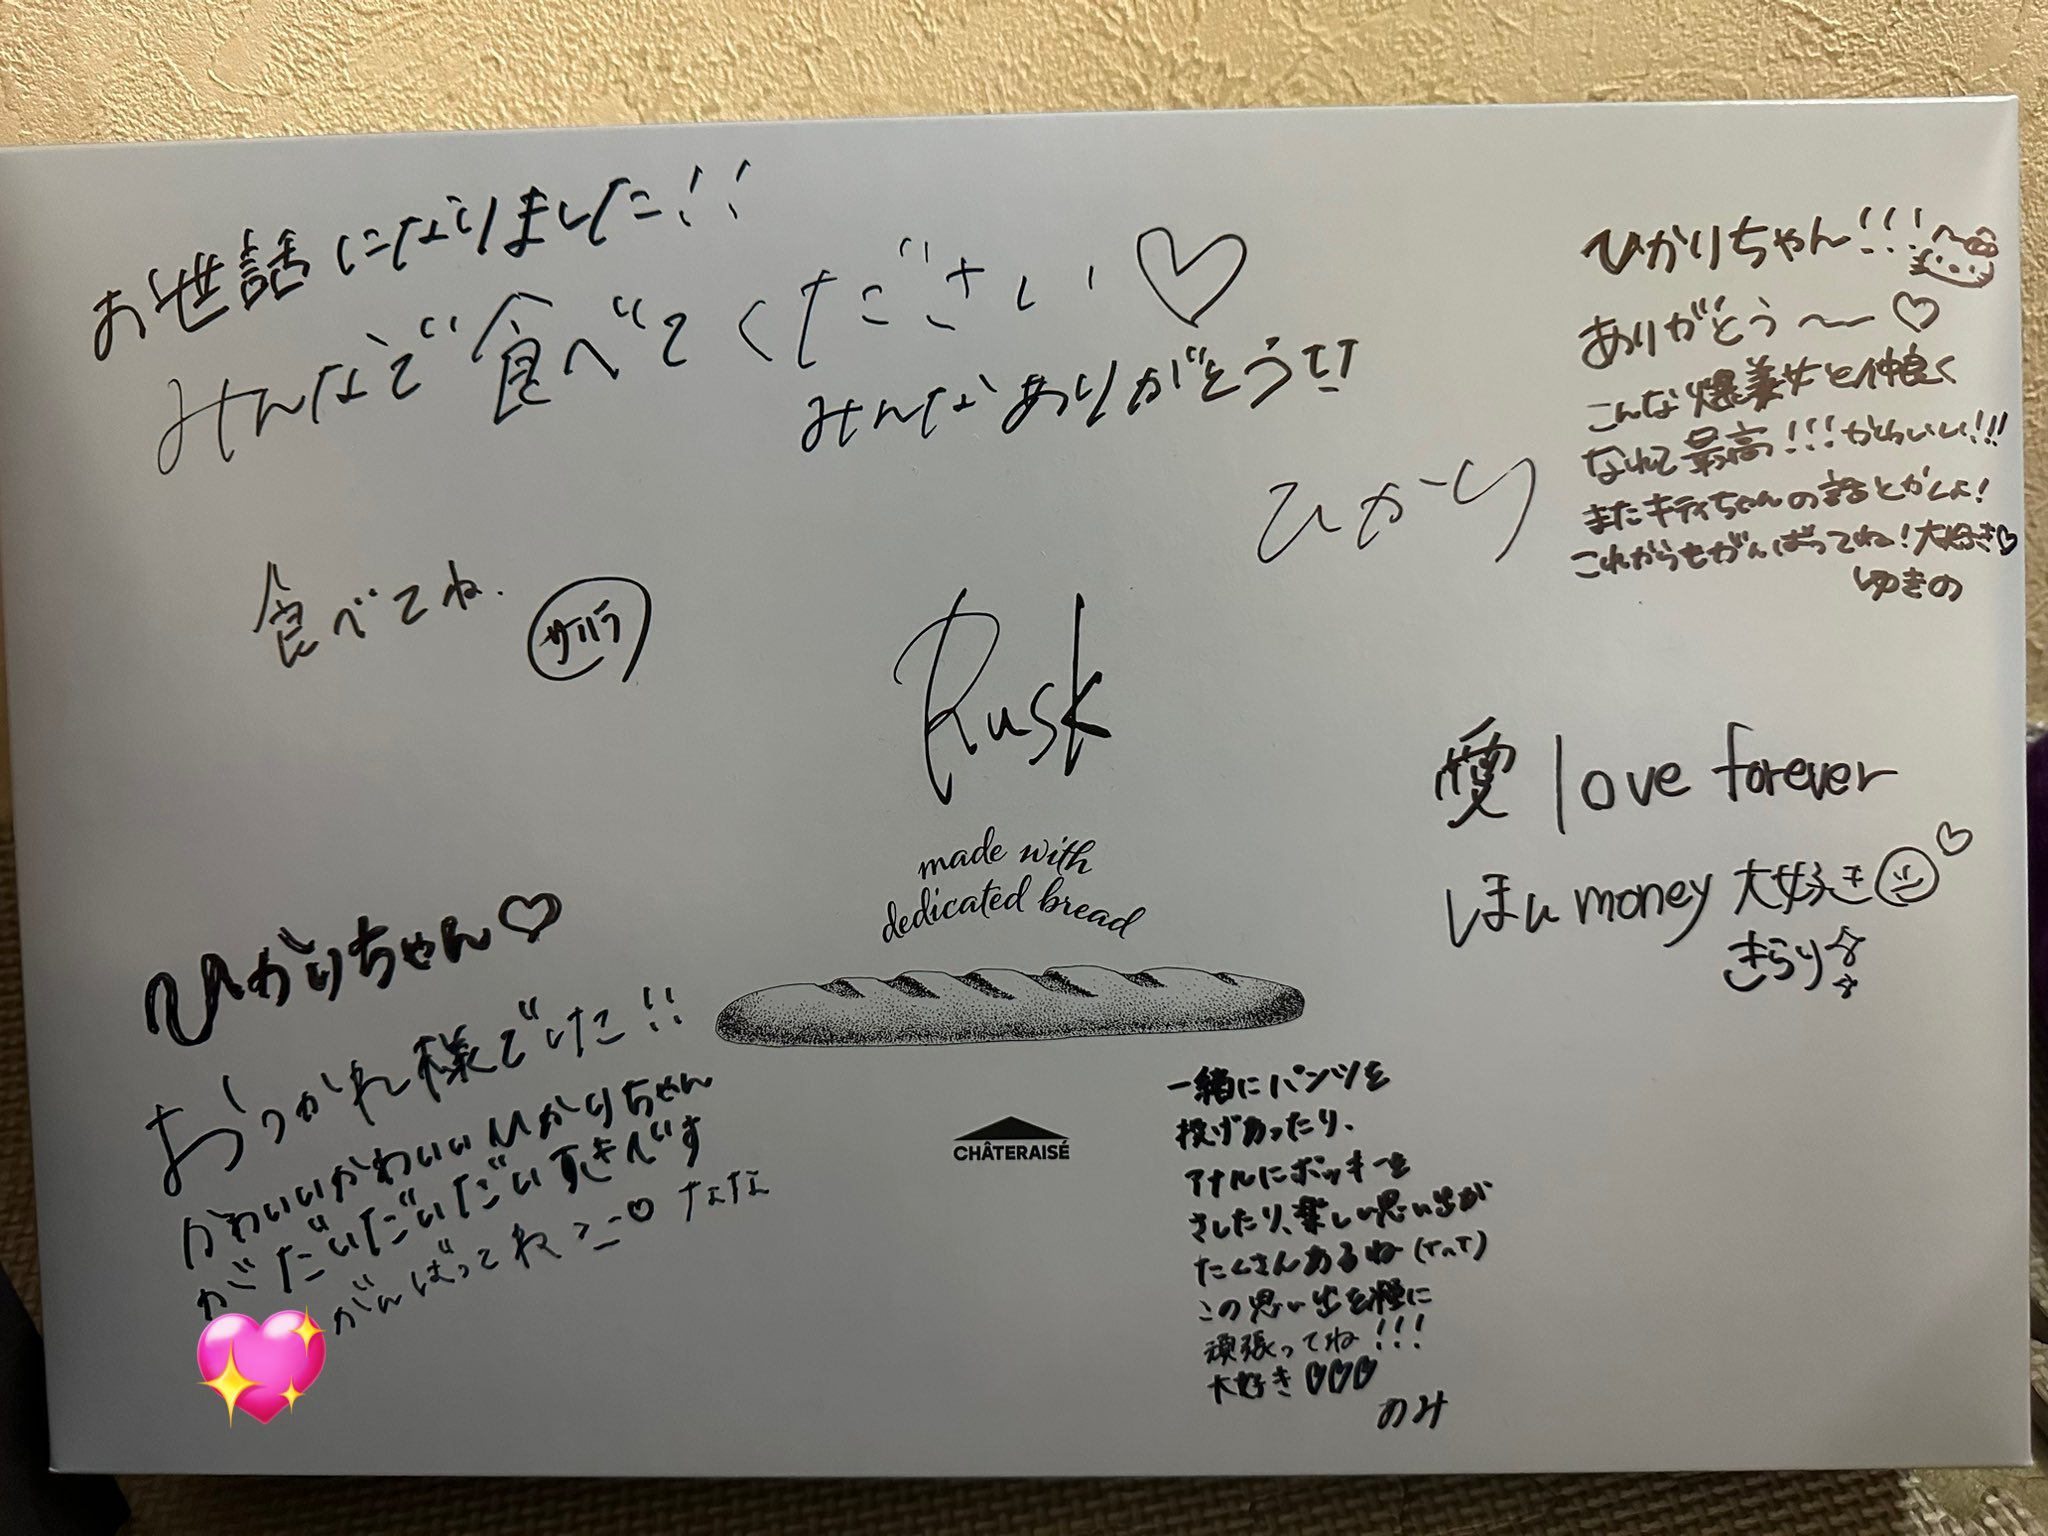 お世話になりました!!
みんなで食べてください♡
みんなありがとう!!
ひかり
ひかりちゃん!!!
ありがとう〜♡
こんな爆美女と仲良く
なれて最高!!!かわいい!!!
またキティちゃんの話とかしよ!
これからもがんばってね!大好き♡
ゆきの
食べてね.
サハラ
Rusk
made with
dedicated bread
CHÂTERAISÉ
愛 love forever
ほん money 大好き♡
きらり
ひかりちゃん♡
おつかれ様でした!!
かわいいかわいいひかりちゃん
がだいだいだいだいすきです
がんばってね♡ なな
一緒にパンツを
投げあったり、
アナルにポッキーを
さしたり、楽しい思い出が
たくさんあるね(TnT)
この思い出を糧に
頑張ってね!!!
大好き♡♡♡
のみ